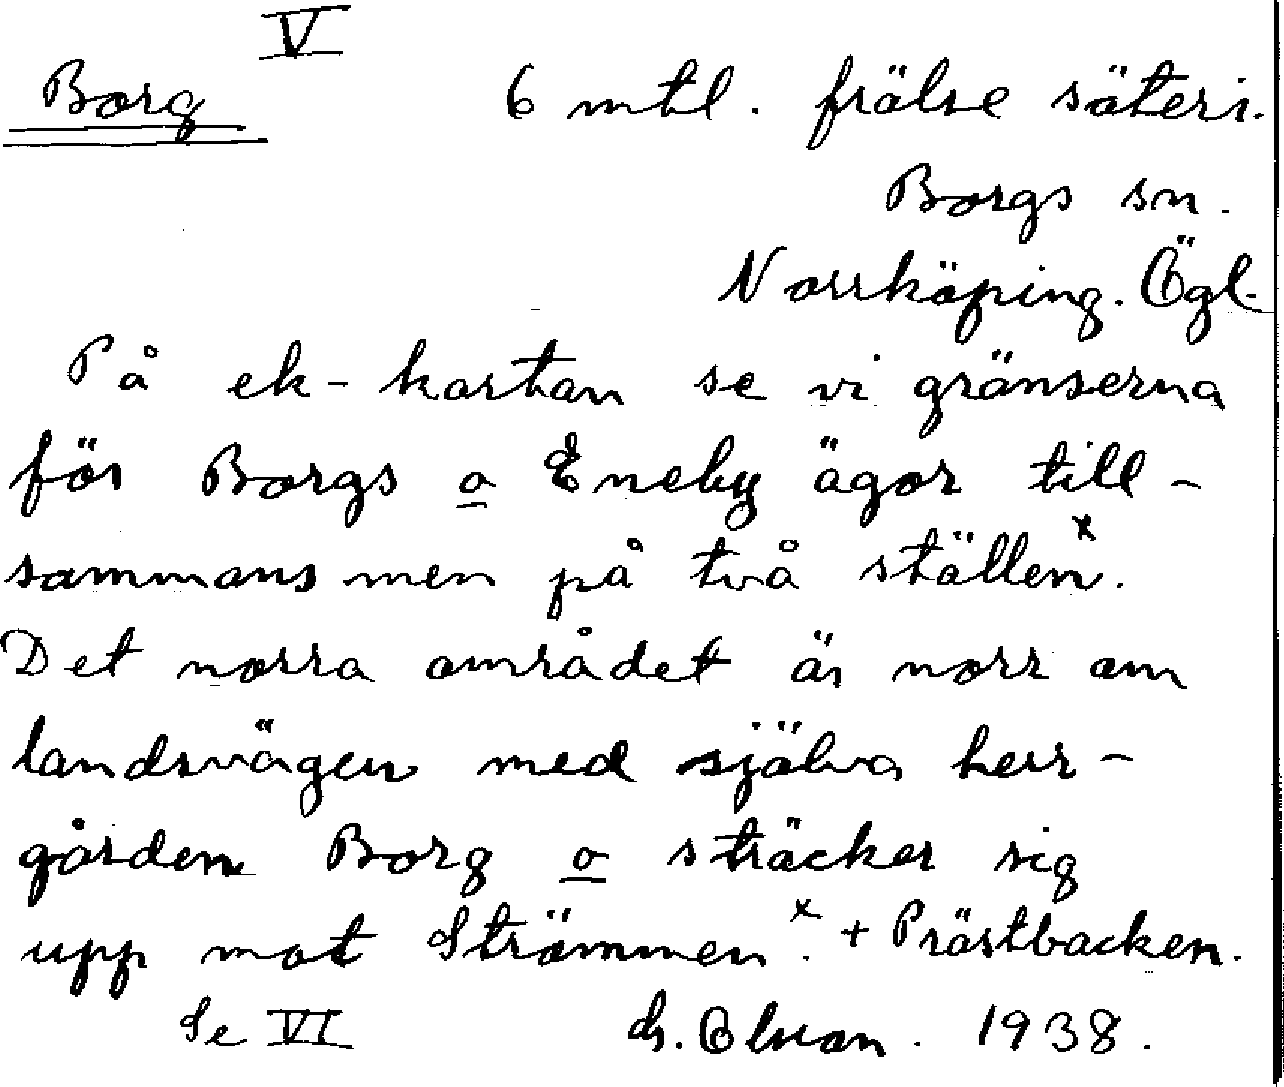 V
Borg 6 mtl. frälse säteri.
Borgs sn.
Norrköping. Ögl.
På ek-kartan se vi gränserna
för Borgs o Eneby ägor till-
sammans men på två ställen.x
Det norra området är norr om
landsvägen med själva herr-
gården Borg o sträcker sig
upp mot Strömmen.x + Prästbacken.
Se VI 1938.